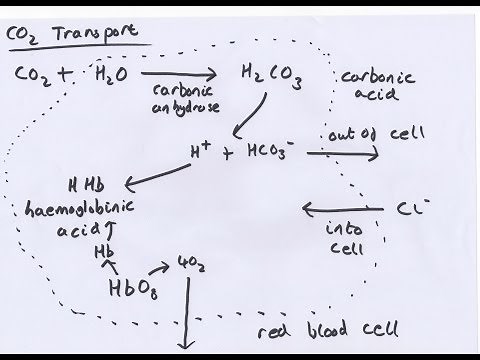 CO₂ Transport
CO₂ + H₂O → H₂CO₃
carbonic
anhydrase
carbonic
acid
H⁺ + HCO₃⁻ → out of cell
HHb
haemoglobinic
acid
Cl⁻
into
cell
Hb
4O₂
HbO₈
red blood cell